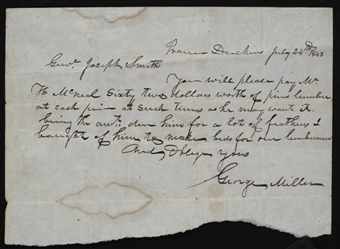 Prairie Duchien July 24th 1843
Genl. Joseph Smith
You will please pay Mr
H McNeil Sixty two dollars worth of pine lumber
at cash price at such times as he may want it
being the amt. due him for a lot of feathers I
bought of him to make beds for our lumbermen
And Oblige yours
George Miller